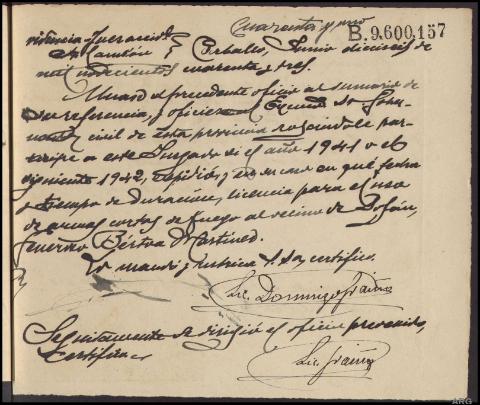 Cuarenta y uno
B.9.600,157
Carballo, Junio dieciseis de
mil novecientos cuarenta y tres.
el precedente oficio al sumario de
su referencia, y oficiese al Excmo Sr Gober-
nador civil de esta provincia par-
ticipe a este Juzgado si el año 1941 o el
siguiente 1942, expidió, y en su caso en que fecha
y tiempo de duración, licencia para el uso
de armas cortas de fuego al vecino de
Martinez.
Lo mandó y rubrica S. Sª, certifico.
Lic. Domingo
Seguidamente se dirigió el oficio prevenido,
Certifico
Lic.
ARG